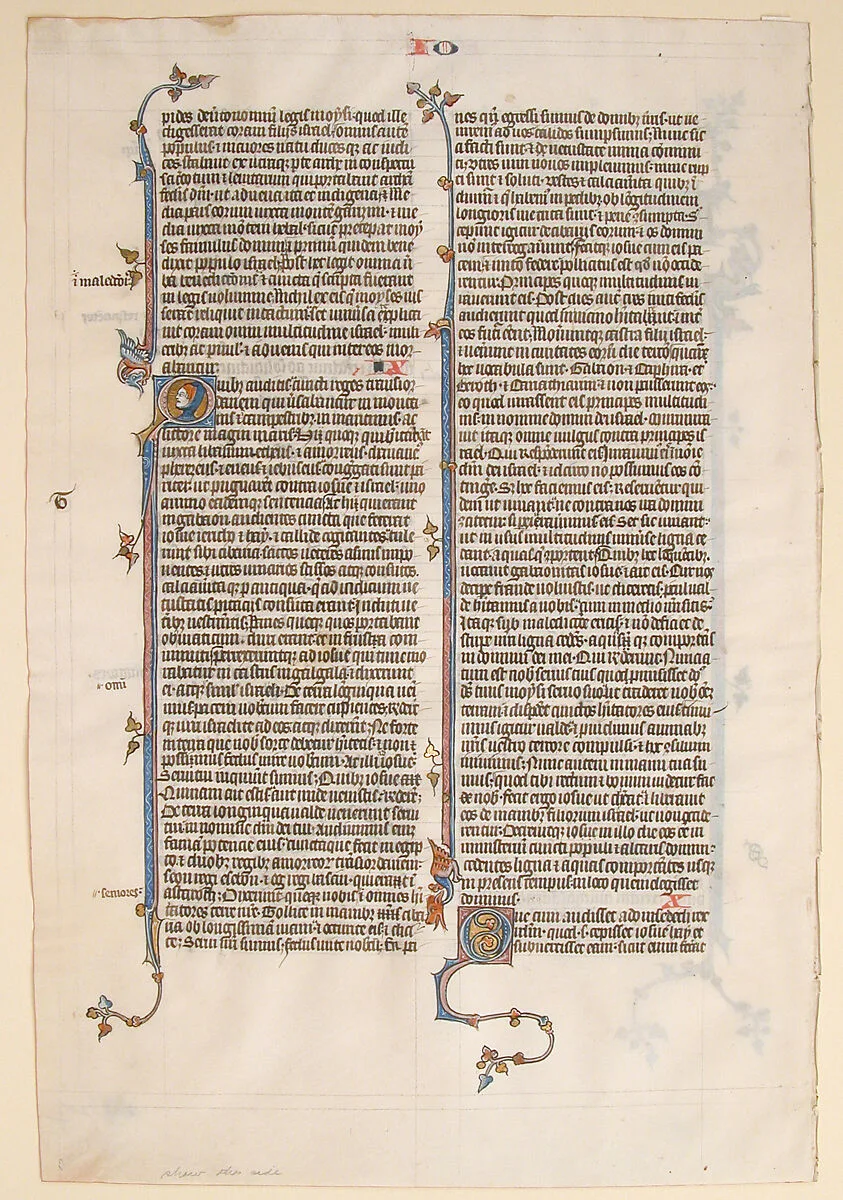 IO
pides deuteronomiū legis moysi · quod ille
digesserat coram filiis israel · omnis autē
populus · & maiores natu duces qȝ ac iudi
ces stabant ex utraqȝ pte arche in conspectu
sacdotum & leuitarum qui portabant archā
federis dni · ut aduena ita et indigena · Me
dia pars eorum iuxta montē garizim · & me
dia iuxta mōtem hebal · sicut preceperat moy
ses famulus domini
dixit populo israel · Post hec legit omnia ū
ba benedictōnis & cuncta qȝ scripta fuerant
in legis uolumine · Nichil ex eis qȝ moyses ius
serat reliquit intactum · set uniuersa explica
uit coram omni multitudine israel · muli
eribȝ ac paruulis · & aduenis qui inter eos mor
abantur
i maledōis
IX
Quibȝ auditis cuncti reges transior
danem qui uersabantur in monta
nis & campestribȝ · in maritimis ac
littore magni maris · Hii quoqȝ qui habitabāt
iuxta libanum · etheus · & amorreus · chananeus
pherezeus · & eueus & iebuseus · congregati sunt pa
riter · ut pugnarent contra iosue & israel · uno
animo eademqȝ sentencia · At hii qui erant
in gabaon audientes cuncta que fecerat
iosue iericho & hay · & callide cogitantes tule
runt sibi cibaria · saccos ueteres asinis inpo
nentes · & utres uinarios scissos atqȝ consutos ·
calciamtaqȝ pantiqua · q̄ ad indicium ue
tustatis pitaciis consuta erant · induti ue
teribȝ uestimtis · Panes quoqȝ quos portabant
ob uiaticum · duri erant et in frusta com
minuti · perrexeruntqȝ ad iosue qui tunc mo
rabatur in castris in galgala · & dixerunt
ei · atqȝ simul israeli · De terra longinqua ueni
mus pacem uobiscum facere cupientes ·
qȝ uiri israel ad eos atqȝ dixerunt · Ne forte
in terra que nobis sorte debetur habitetis · & non
possimus fedus inire uobiscum · At illi ad iosue ·
Serui tui inquiunt sumus · Quibȝ iosue ait ·
Quinam ait estis aut unde uenistis ·
De terra longinqua ualde uenerunt serui
tui in nomine dni dei tui · Audiuimus enim
famā potencie eius · cunctaqȝ que fecit in egip
to · & duobȝ regibȝ amorreorum trans iordanem ·
seon regi esebon · & og regi basan · qui erant ī
astaroth · Dixeruntqȝ nobis
ītatores terre nre · Tollite in manibȝ cibar
ia ob longissimam uiam · & occurrite eis · & dici
te · Serui ūri sumus · fedus inite nobiscum · En pa
T
omī
seniores
nes qn̄ egressi sumus de domibȝ nris · ut ue
niremus ad uos calidos sumpsimus · Nunc sic
ci facti sunt · & de uetustate nimia comminu
ti · Vtres uini nouos impleuimus · nunc rup
ti sunt & soluti · Vestes & calciamta quibȝ ī
duimur & qȝ habemus in pedibȝ · ob longitudinem
longioris uie trita sunt · & pene
ceperunt igitur de cibariis eorum · & os domini
nō interrogauerunt · Fecitqȝ iosue cum eis pa
cem · & inito federe pollicitus est qd nō occide
rentur · Principes quoqȝ multitudinis iu
rauerunt eis · Post dies autē tres initi federis
audierunt quod in uicino
eos futuri essent · Moueruntqȝ castra filii israel ·
& uenerunt in ciuitates eorum die tercio · quarum
hec uocabula sunt · Gabaon · & Caphira · et
Beroth · & Cariathiarim · & non percusserunt eos ·
eo quod iurassent eis principes multitudi
nis · in nomine domini dei israel · Murmura
uit itaqȝ omne uulgus contra principes is
rael · Qui responderunt eis · Iurauimus eis in noīe
dni dei israel · & idcirco nō possumus eos cō
tingere · Sȝ hec faciemus eis · Reseruentur qui
dem ut uiuant · ne contra nos ira domini
si peierauerimus eis · Set sic uiuant ·
ut in usus multitudinis uniuerse ligna ce
dant · aquas qȝ
uocauit gabaonitas iosue · & ait eis · Cur nos
decipere fraude uoluistis · ut diceretis · procul ual
de habitamus a uobis · quum in medio nostri sitis ·
Itaqȝ sub maledictōe eritis · & nō deficiet de
stirpe ura ligna cedens · aquasqȝ comportās
in domum dei mei · Qui responderunt · Nuncia
tum est nobis seruis tuis quod promisisset dns
ds tuus moysi seruo suo · ut traderet uobis oēm
terram · & disperderet cunctos habitatores eius · timu
imus igitur ualde · & prouidimus animabȝ
nris · uestro terrore compulsi · & hoc consilium
inuimus · Nunc autem in manu tua su
mus · quod tibi rectum & bonum uidetur fac
de nobis · Fecit ergo iosue ut dixerat · & liberauit
eos de manibȝ filiorum israel · ut non occide
rentur · Decreuitqȝ iosue in illo die eos esse in
ministerium cuncti populi · & altaris domini ·
cedentes ligna · & aquas comportātes usqȝ
in presens tempus · in loco quem elegisset
dominus ·
X
Que cum audisset adonisedech rex
ierlm · quod s cepisset iosue hay et
subuertisset eam · sicut enim fecerat
show this side